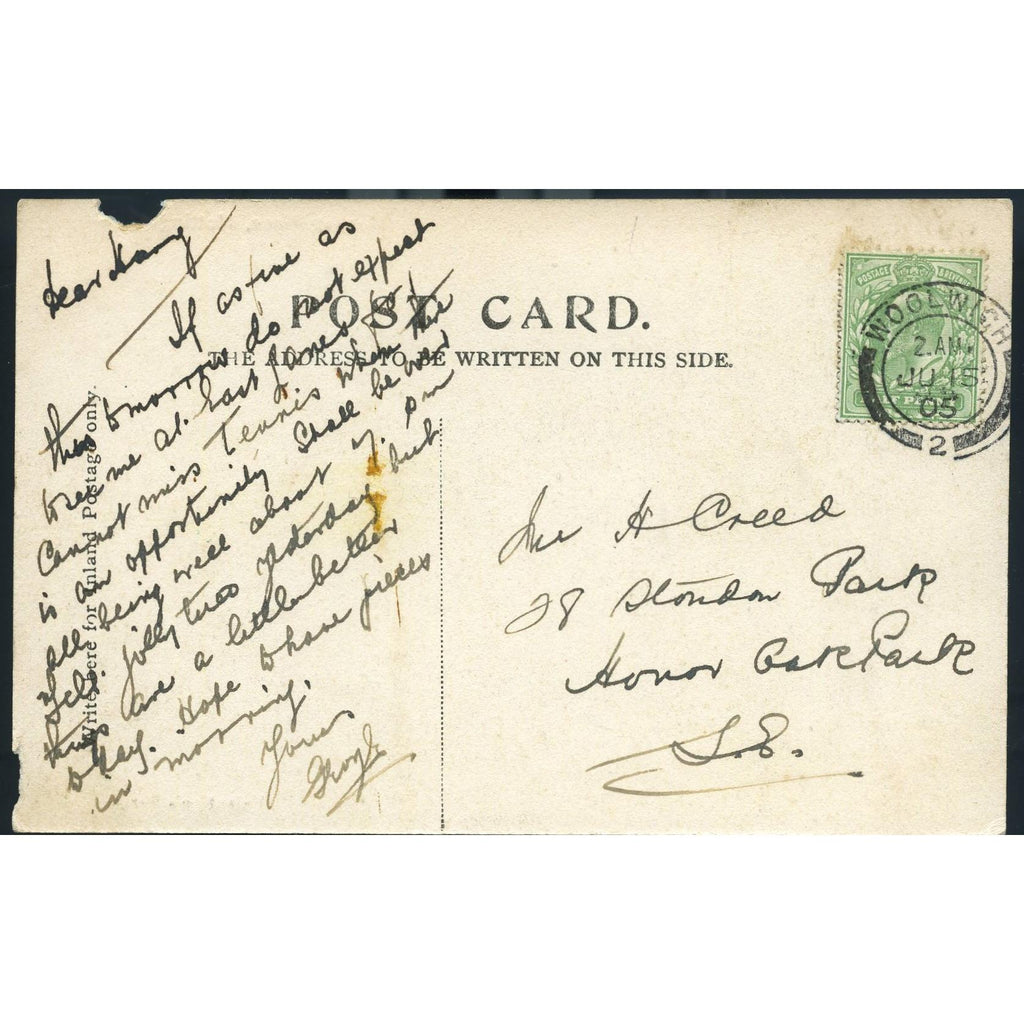 Dear Harry
If as fine as
this tomorrow do not expect
to see me at East Lanes. I
Cannot miss Tennis when the
is an opportunity Shall be over
all being well about 7. pm
Yrs. jolly tired yesterday but
things are a little better
today. Hope to have pieces
in morning.
Yours
POST CARD.
THE ADDRESS TO BE WRITTEN ON THIS SIDE.
Write here for Inland Postage only.
POSTAGE & REVENUE
WOOLWICH
2. AM.
JU 15
05
2
Mr H Creed
28 Stondon Park
Honor Oak Park
S.E.